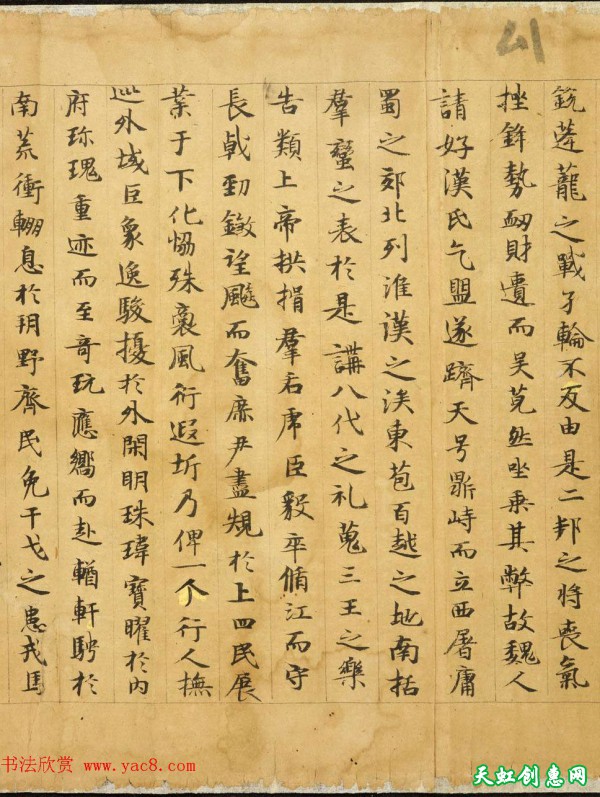 41
銳蓬蘢之戰子輪不反由是二邦之將喪氣
挫鋒勢衂財遺而吴莧然坐乘其弊故魏人
請好漢氏乞盟遂躋天号鼎峙而立西屠庸
蜀之郊北列淮漢之涘東苞百越之地南括
羣蠻之表於是講八代之礼蒐三王之樂
告類上帝拱揖羣后虎臣毅卒脩江而守
長戟勁鎩望飈而奮庶尹盡規於上四民展
業于下化協殊裔風衍遐圻乃俾一个行人撫
巡外域巨象逸駿擾於外閑明珠瑋寶曜於内
府珎瑰重迹而至竒玩應嚮而赴輶軒騁於
南荒衝輣息於朔野齊民免干戈之患戎馬
书法欣赏 www.yac8.com
天虹创惠网